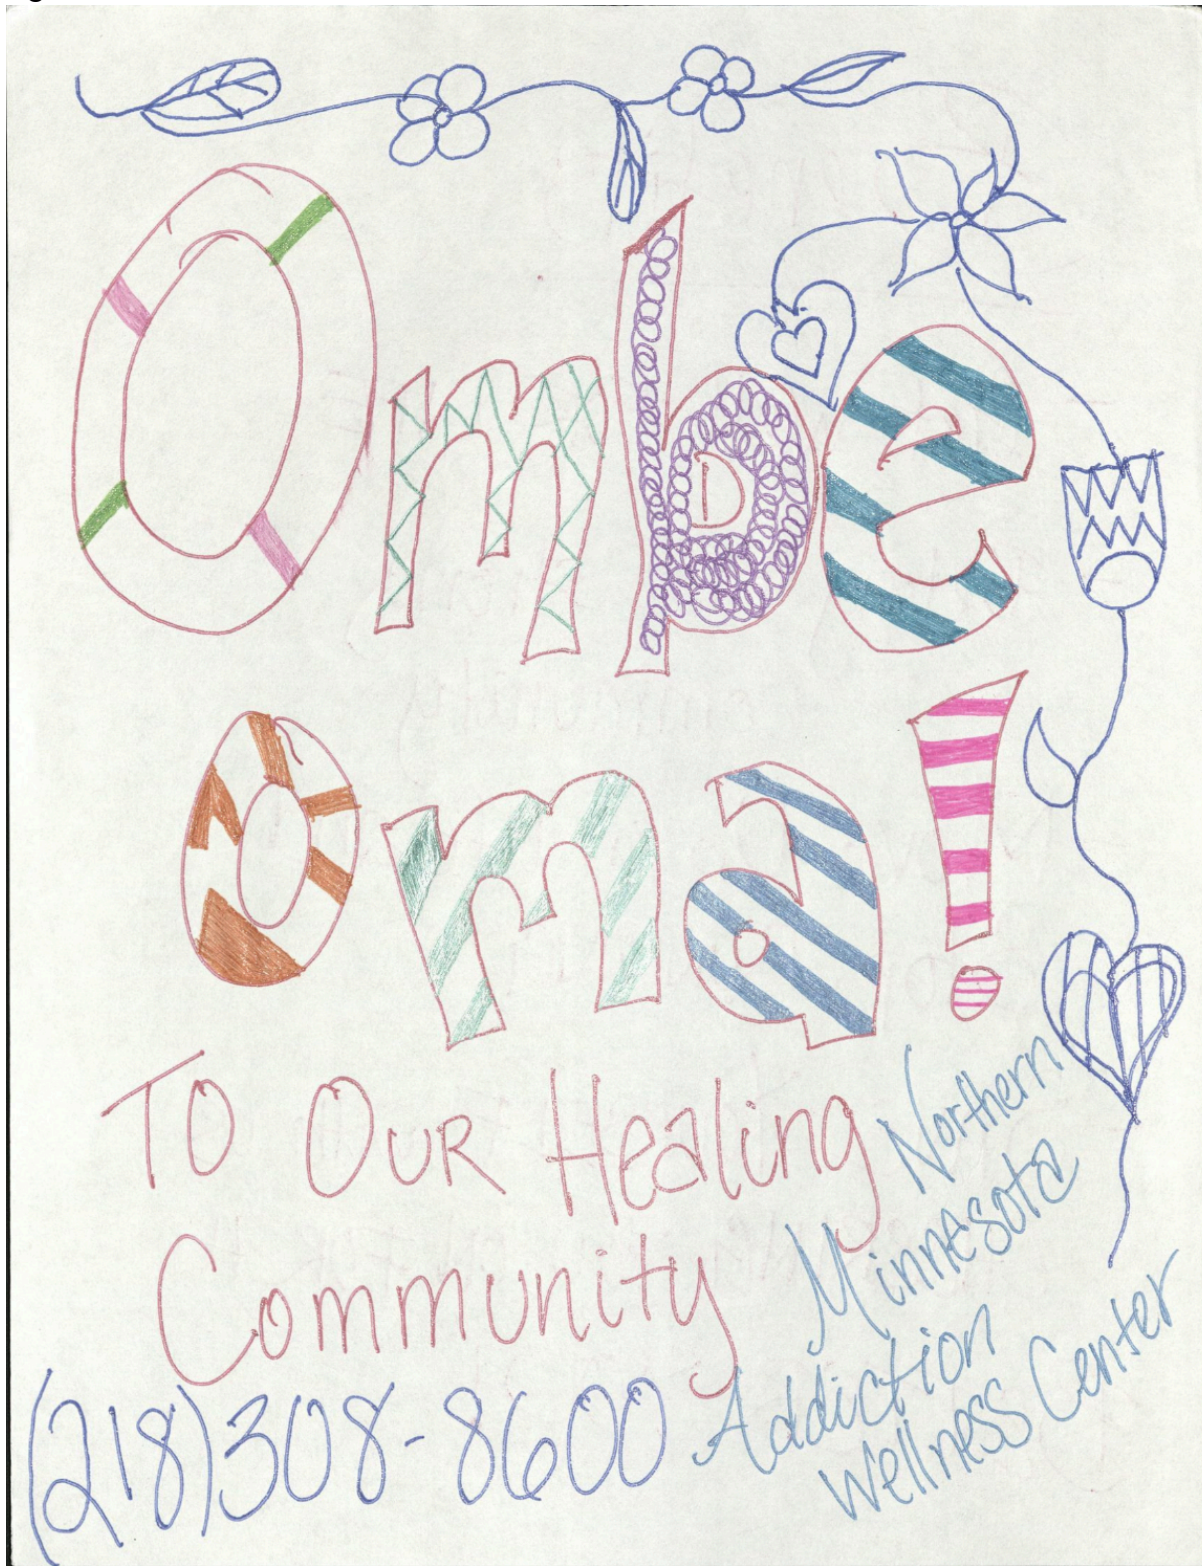 Ombe
Oma!
To Our Healing
Community
(218)308-8600
Northern
Minnesota
Addiction
Wellness Center